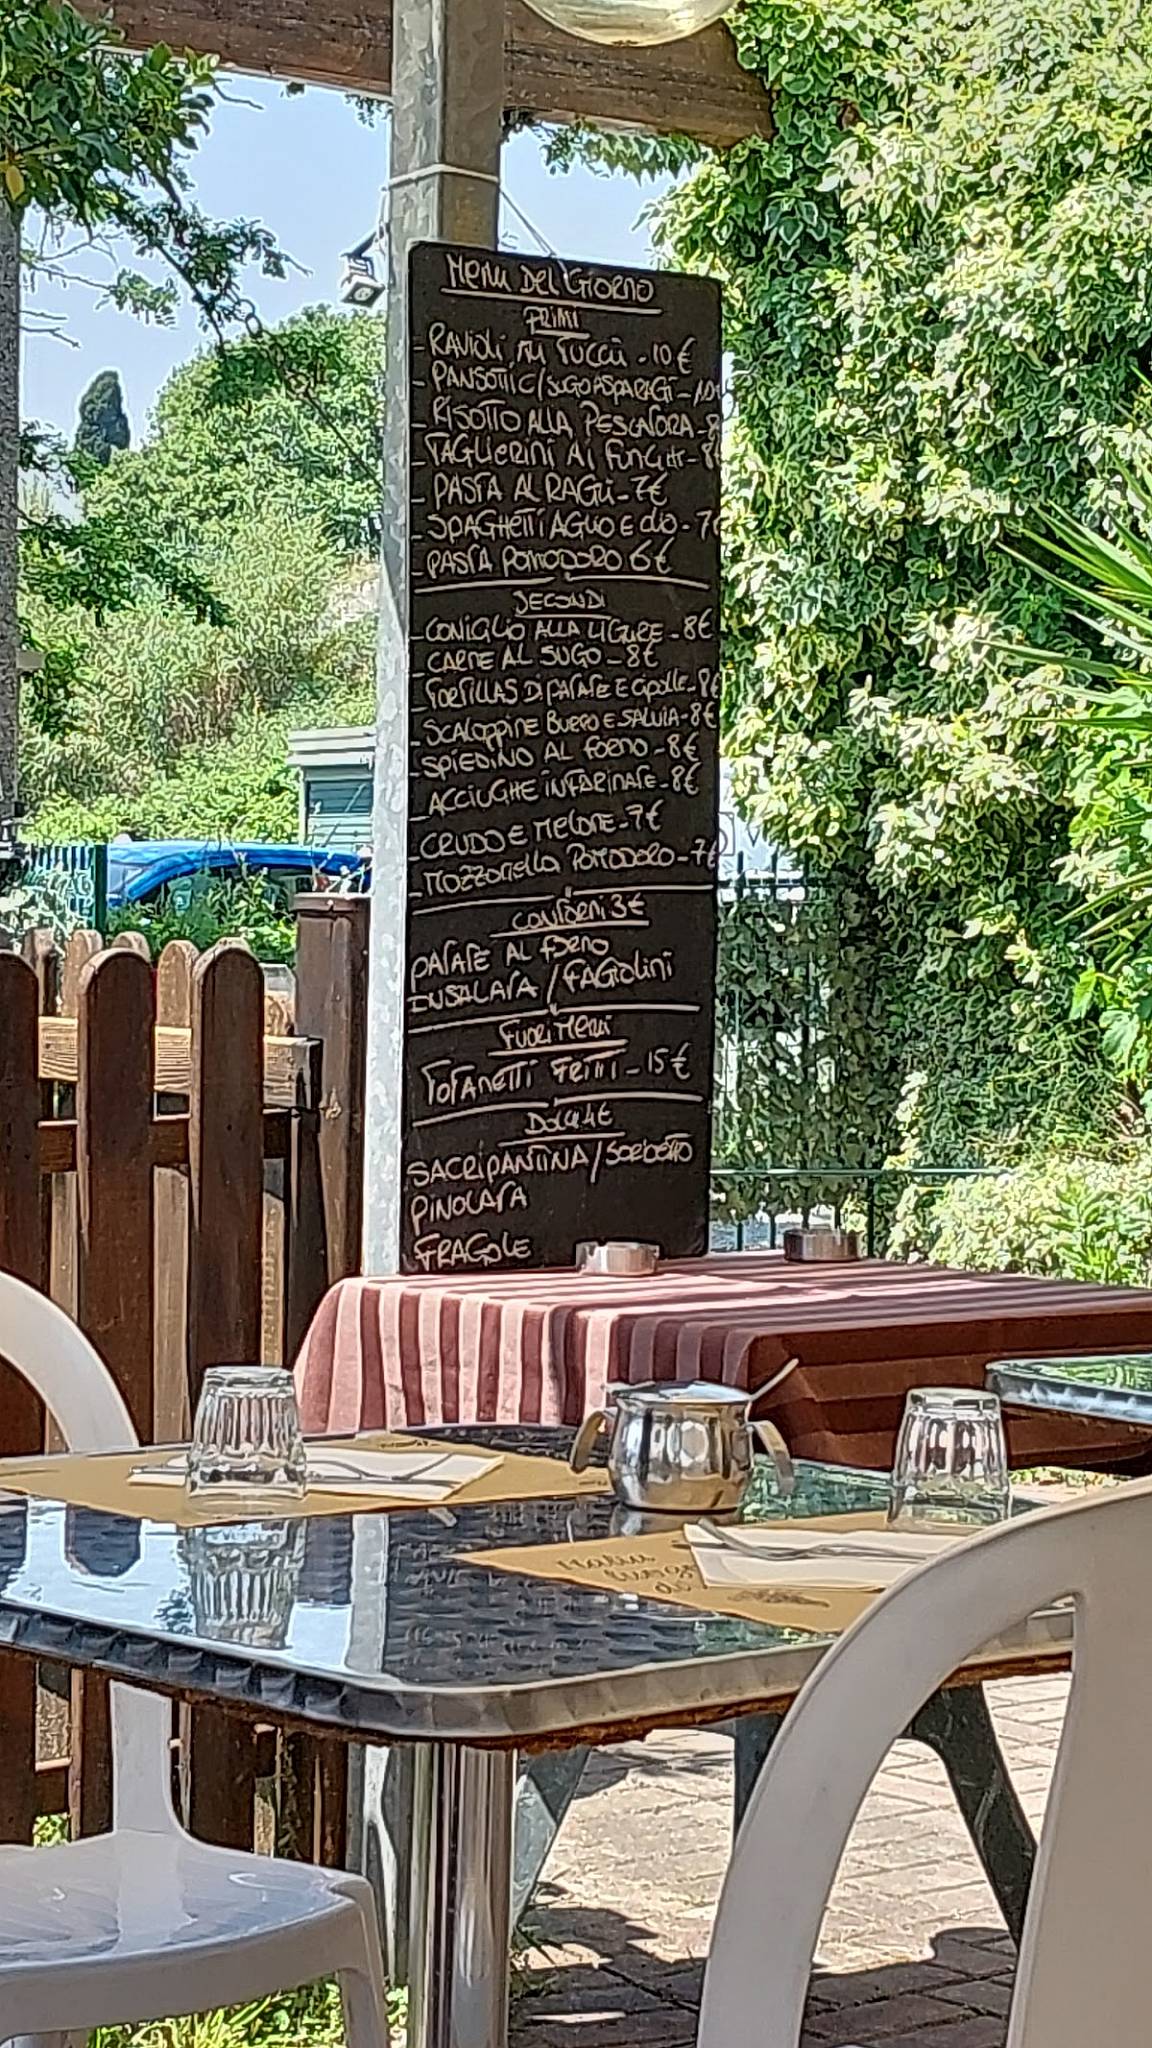 Menu Del Giorno
PRIMI
- RAVIOLI AU TUCCU - 10 €
- PANSOTTI C/SUGO ASPARAGI - 10
- RISOTTO ALLA PESCATORA - 8
- TAGLIERINI AI FUNGHI - 8€
- PASTA AL RAGÙ - 7€
- SPAGHETTI AGLIO E OLIO - 7€
- PASTA POMODORO 6€
SECONDI
- CONIGLIO ALLA LIGURE - 8€
- CARNE AL SUGO - 8€
- TORTILLAS DI PATATE E CIPOLLE - 8€
- SCALOPPINE BURRO E SALVIA - 8€
- SPIEDINO AL FORNO - 8€
- ACCIUGHE INFARINATE - 8€
- CRUDO E MELONE - 7€
- MOZZARELLA POMODORO - 7€
CONTORNI 3€
PATATE AL FORNO
INSALATA / FAGIOLINI
FUORI MENÙ
TOTANETTI FRITTI - 15€
DOLCI 4€
SACRIPANTINA / SORBETTO
PINOLATA
FRAGOLE